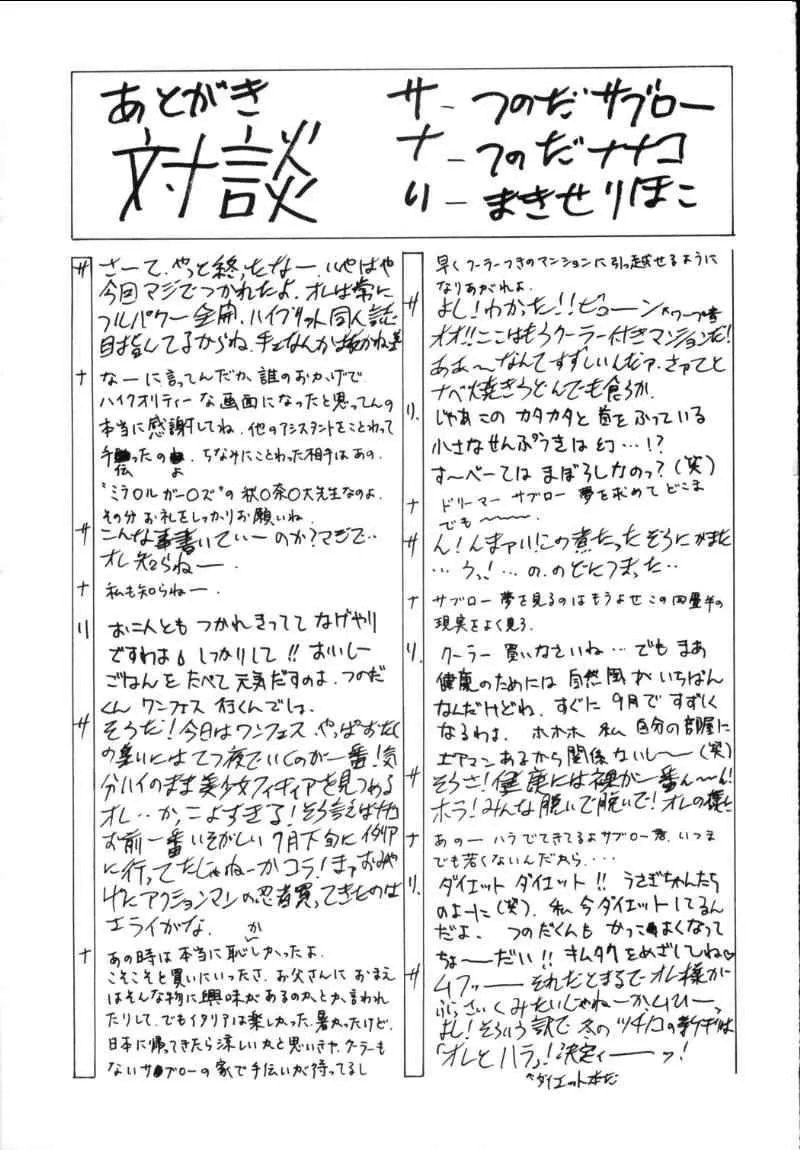 あとがき
対談
サ－つのだサブロー
ナ－つのだナナコ
り－まきせりほこ
サ さーて、やっと終ったなー、いやはや
今回マジでつかれたよ、オレは常に
フルパワー全開、ハイブリット同人誌
目指してるからね、手なんかは抜かね
ナ なーに言ってんだか、誰のおかげで
ハイクオリティーな画面になったと思ってんの
本当に感謝してね、他のアシスタントをことわって
手伝ったのよ、ちなみにことわった相手はあの、
"ミラ○ルガー○ズ"の秋○奈○大先生なのよ、
その分お礼をしっかりお願いね、
サ こんな事書いていーのか?マジで‥
オレ知らねー、
ナ 私も知らねー、
り お二人とも つかれきってて なげやり
ですわよ しっかりして!! おいしー
ごはんを たべて 元気だすのよ、つのだ
くん ワンフェス 行くんでしょ、
サ そうだ!今日はワンフェス、やっぱおたく
の集いにはてつ夜でいくのが一番!気
分ハイのまま美少女フィギュアを見つめる
オレ‥かっこよすぎる!そう言えばナナコ
お前一番いそがしい7月下旬にイタリア
に行ってたじゃねーかコラ!まァおみや
げにアクションマンの忍者買ってきたのは
エライがな、
ナ あの時は本当に恥かしかったよ、
こそこそと買いにいったさ、お父さんにおまえ
はそんな物に興味があるのかとか言われ
たりして、でもイタリアは楽しかった、暑かったけど、
日本に帰ってきたら涼しいかと思いきや、クーラーも
ないサブローの家で手伝いが待ってるし
早くクーラーつきのマンションに引っ越せるように
なりあがれよ、
サ よし!わかった!!ビューン ＊ワープ音
オオ!!ここはもうクーラー付きマンションだ!
ああ～なんてすずしいんだァ、さァてと
ナベ焼きうどんでも食うか、
り、じゃあこの カタカタと首をふっている
小さなせんぷうきは幻…!?
す～べーては まぼろしなのっ?(笑)
ナ ドリーマー サブロー 夢を求めて どこま
でも～～～、
サ ん!んまァい!この煮たったぞうにがまた
…うっ!…の、のどにつまった‥
ナ サブロー 夢を見るのはもうよせ この四畳半の
現実をよく見ろ、
り、クーラー 買いなさいね…でも まあ
健康のためには 自然風が いちばん
なんだけどね、すぐに 9月で すずしく
なるわよ、ホホホ 私 自分の部屋に
エアコンあるから関係ないし～(笑)
サ そうさ!健康には裸が一番ん～ん!
ホラ!みんな脱いで脱いで!オレの様に
ナ あのー ハラでてきてるよサブロー君、いつま
でも若くないんだから、‥‥
り、ダイエット ダイエット!! うさぎちゃんたち
のよーに(笑)、私 今ダイエットしてるん
だよ、つのだくんも かっこよくなって
ちょーだい!! キムタクをめざしてね♡
サ ムフッー それだとまるでオレ様が
ぶさいくみたいじゃねーか、ムヒーっ
よし!そういう訳で 冬のツチノコの新刊は
「オレとハラ」!決定ィーーッ!
＾ダイエット本だ